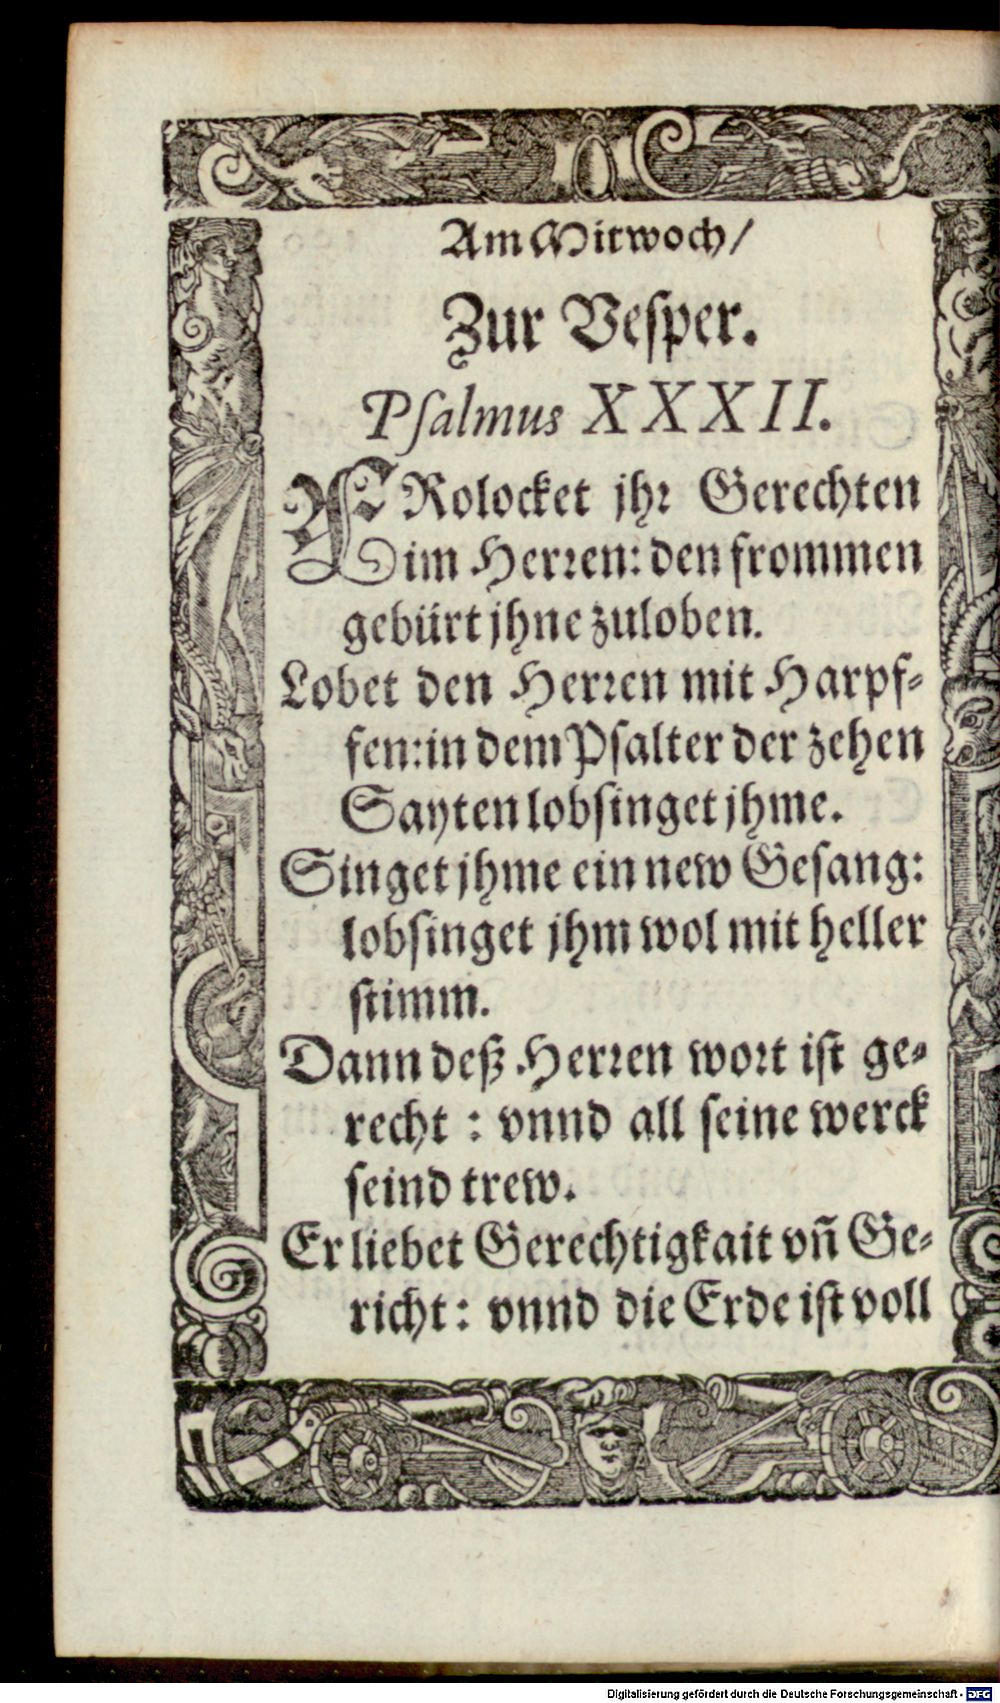 Am Mitwoch/
Zur Vesper.
Psalmus XXXII.
FRolocket jhr Gerechten
im Herren: den frommen
gebürt jhne zuloben.
Lobet den Herren mit Harpf-
fen: in dem Psalter der zehen
Sayten lobsinget jhme.
Singet jhme ein new Gesang:
lobsinget jhm wol mit heller
stimm.
Dann deß Herren wort ist ge-
recht : vnnd all seine werck
seind trew.
Er liebet Gerechtigkait vñ Ge-
richt: vnnd die Erde ist voll
Digitalisierung gefördert durch die Deutsche Forschungsgemeinschaft - DFG